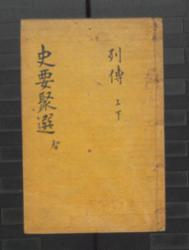 列傳 上下
史要聚選